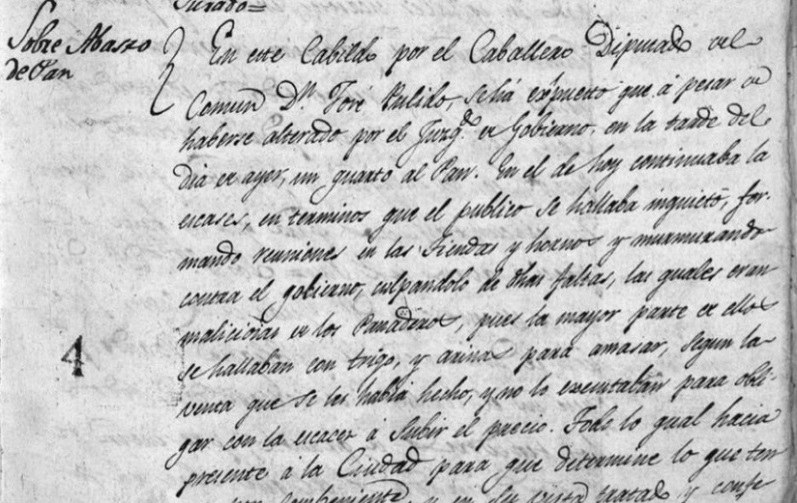 Jurado=
Sobre Abasto
de Pan
En este Cabildo por el Caballero Diputado del
Comun Dn. José Pulido, se há expuesto que á pesar de
haberse alterado por el Juzgdo. de Gobierno, en la tarde del
dia de ayer, un quarto al Pan. En el de hoy continuaba la
escases, en terminos que el publico se hallaba inquieto, for-
mando reuniones en las tiendas y hornos y murmurando
contra el gobierno, culpandolo de otras faltas, las quales eran
maliciosas en los Panaderos, pues la mayor parte de ellos
se hallaban con trigo, y arinas para amasar, segun la
venta que se les habia hecho, y no lo executaban para obli-
gar con la escaces á subir el precio. Todo lo qual hacia
presente a la Ciudad para que determine lo que ten
combeniente, y en su vista tratado y confe
4